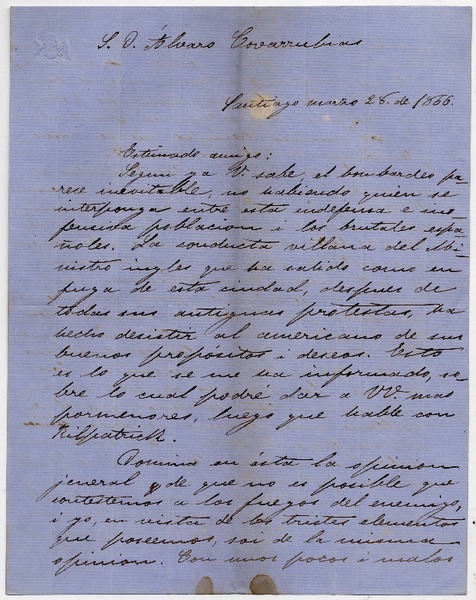 S. D. Álvaro Covarrubias
Santiago marzo 28. de 1866.
Estimado amigo:
Segun ya V. sabe, el bombardeo pa-
rece inevitable, no habiendo quien se
interponga entre esta indefensa e ino-
fensiva poblacion i los brutales espa-
ñoles. La conducta villana del Mi-
nistro ingles que ha salido como en
fuga de esta ciudad, despues de
todas sus antiguas protestas, ha
hecho desistir al americano de sus
buenos propositos i deseos. Esto
es lo que se me ha informado, so-
bre lo cual podré dar a VV. mas
pormenores, luego que hable con
Kilpatrick.
Domina en ésta la opinion
jeneral de que no es posible que
contestemos a los fuegos del enemigo,
i yo, en vista de los tristes elementos
que poseemos, soi de la misma
opinion. Con unos pocos i malos